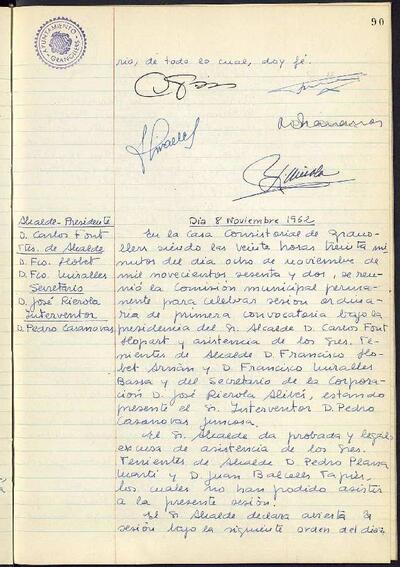 90
AYUNTAMIENTO
GRANOLLERS
rio, de todo lo cual, doy fé.
Alcalde-Presidente
D. Carlos Font
Ttes. de Alcalde
D. Fco. Llobet
D. Fco. Miralles
Secretario
D. José Rierola
Interventor
D. Pedro Casanovas
Día 8 Noviembre 1962
En la Casa Consistorial de Grano-
llers siendo las veinte horas treinta mi-
nutos del día ocho de noviembre de
mil novecientos sesenta y dos, se reu-
nió la Comisión municipal perma-
nente para celebrar sesión ordina-
ria de primera convocatoria bajo la
presidencia del Sr. Alcalde D. Carlos Font
Llopart y asistencia de los Sres. Te-
nientes de Alcalde D. Francisco Llo-
bet Arnán y D. Francisco Miralles
Bassa y del Secretario de la Corpora-
ción D. José Rierola estando
presente el Sr. Interventor D. Pedro
Casanovas
El Sr. Alcalde da probada y legal
excusa de asistencia de los Sres.
Tenientes de Alcalde D. Pedro Planas
Martí y D. Juan Balcells Tapies,
los cuales no han podido asistir
a la presente sesión.
El Sr. Alcalde declara abierta la
sesión bajo la siguiente orden del día: